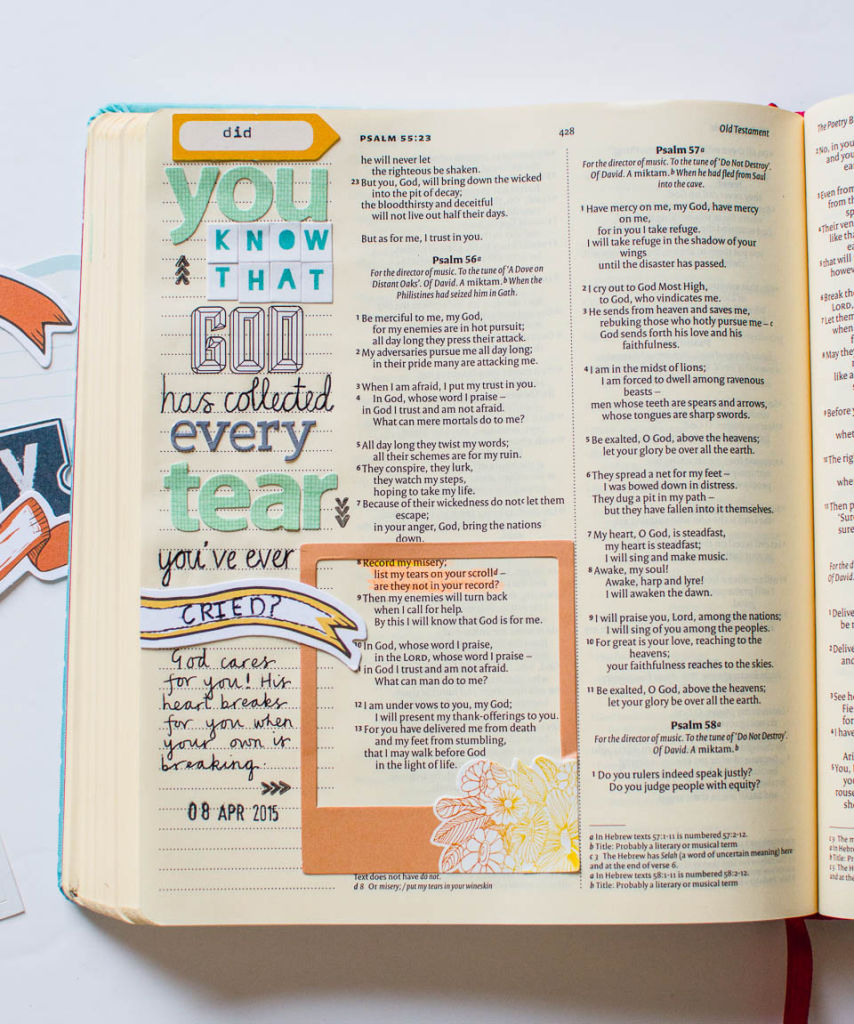 did
you
KNOW
THAT
GOD
has collected
every
tear
you've ever
CRIED?
God cares
for you! His
heart breaks
for you when
your own is
breaking.
08 APR 2015
PSALM 55:23
428
Old Testament
he will never let
the righteous be shaken.
23 But you, God, will bring down the wicked
into the pit of decay;
the bloodthirsty and deceitful
will not live out half their days.
But as for me, I trust in you.
Psalm 56a
For the director of music. To the tune of 'A Dove on
Distant Oaks'. Of David. A miktam.b When the
Philistines had seized him in Gath.
1 Be merciful to me, my God,
for my enemies are in hot pursuit;
all day long they press their attack.
2 My adversaries pursue me all day long;
in their pride many are attacking me.
3 When I am afraid, I put my trust in you.
4 In God, whose word I praise –
in God I trust and am not afraid.
What can mere mortals do to me?
5 All day long they twist my words;
all their schemes are for my ruin.
6 They conspire, they lurk,
they watch my steps,
hoping to take my life.
7 Because of their wickedness do notc let them
escape;
in your anger, God, bring the nations
down.
8 Record my misery;
list my tears on your scrolld –
are they not in your record?
9 Then my enemies will turn back
when I call for help.
By this I will know that God is for me.
10 In God, whose word I praise,
in the LORD, whose word I praise –
in God I trust and am not afraid.
What can man do to me?
12 I am under vows to you, my God;
I will present my thank-offerings to you.
13 For you have delivered me from death
and my feet from stumbling,
that I may walk before God
in the light of life.
Text does not have do not.
d 8 Or misery; / put my tears in your wineskin
Psalm 57a
For the director of music. To the tune of 'Do Not Destroy'.
Of David. A miktam.b When he had fled from Saul
into the cave.
1 Have mercy on me, my God, have mercy
on me,
for in you I take refuge.
I will take refuge in the shadow of your
wings
until the disaster has passed.
2 I cry out to God Most High,
to God, who vindicates me.
3 He sends from heaven and saves me,
rebuking those who hotly pursue me – c
God sends forth his love and his
faithfulness.
4 I am in the midst of lions;
I am forced to dwell among ravenous
beasts –
men whose teeth are spears and arrows,
whose tongues are sharp swords.
5 Be exalted, O God, above the heavens;
let your glory be over all the earth.
6 They spread a net for my feet –
I was bowed down in distress.
They dug a pit in my path –
but they have fallen into it themselves.
7 My heart, O God, is steadfast,
my heart is steadfast;
I will sing and make music.
8 Awake, my soul!
Awake, harp and lyre!
I will awaken the dawn.
9 I will praise you, Lord, among the nations;
I will sing of you among the peoples.
10 For great is your love, reaching to the
heavens;
your faithfulness reaches to the skies.
11 Be exalted, O God, above the heavens;
let your glory be over all the earth.
Psalm 58a
For the director of music. To the tune of 'Do Not Destroy'.
Of David. A miktam.b
1 Do you rulers indeed speak justly?
Do you judge people with equity?
a In Hebrew texts 57:1-11 is numbered 57:2-12.
b Title: Probably a literary or musical term
c 3 The Hebrew has Selah (a word of uncertain meaning) here
and at the end of verse 6.
a In Hebrew texts 58:1-11 is numbered 58:2-12.
b Title: Probably a literary or musical term
The Poetry